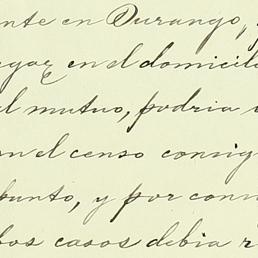 ente en Durango, y
egar en el domicili
l mutuo, podria
n el censo consig
punto, y por conv
bos casos debia r